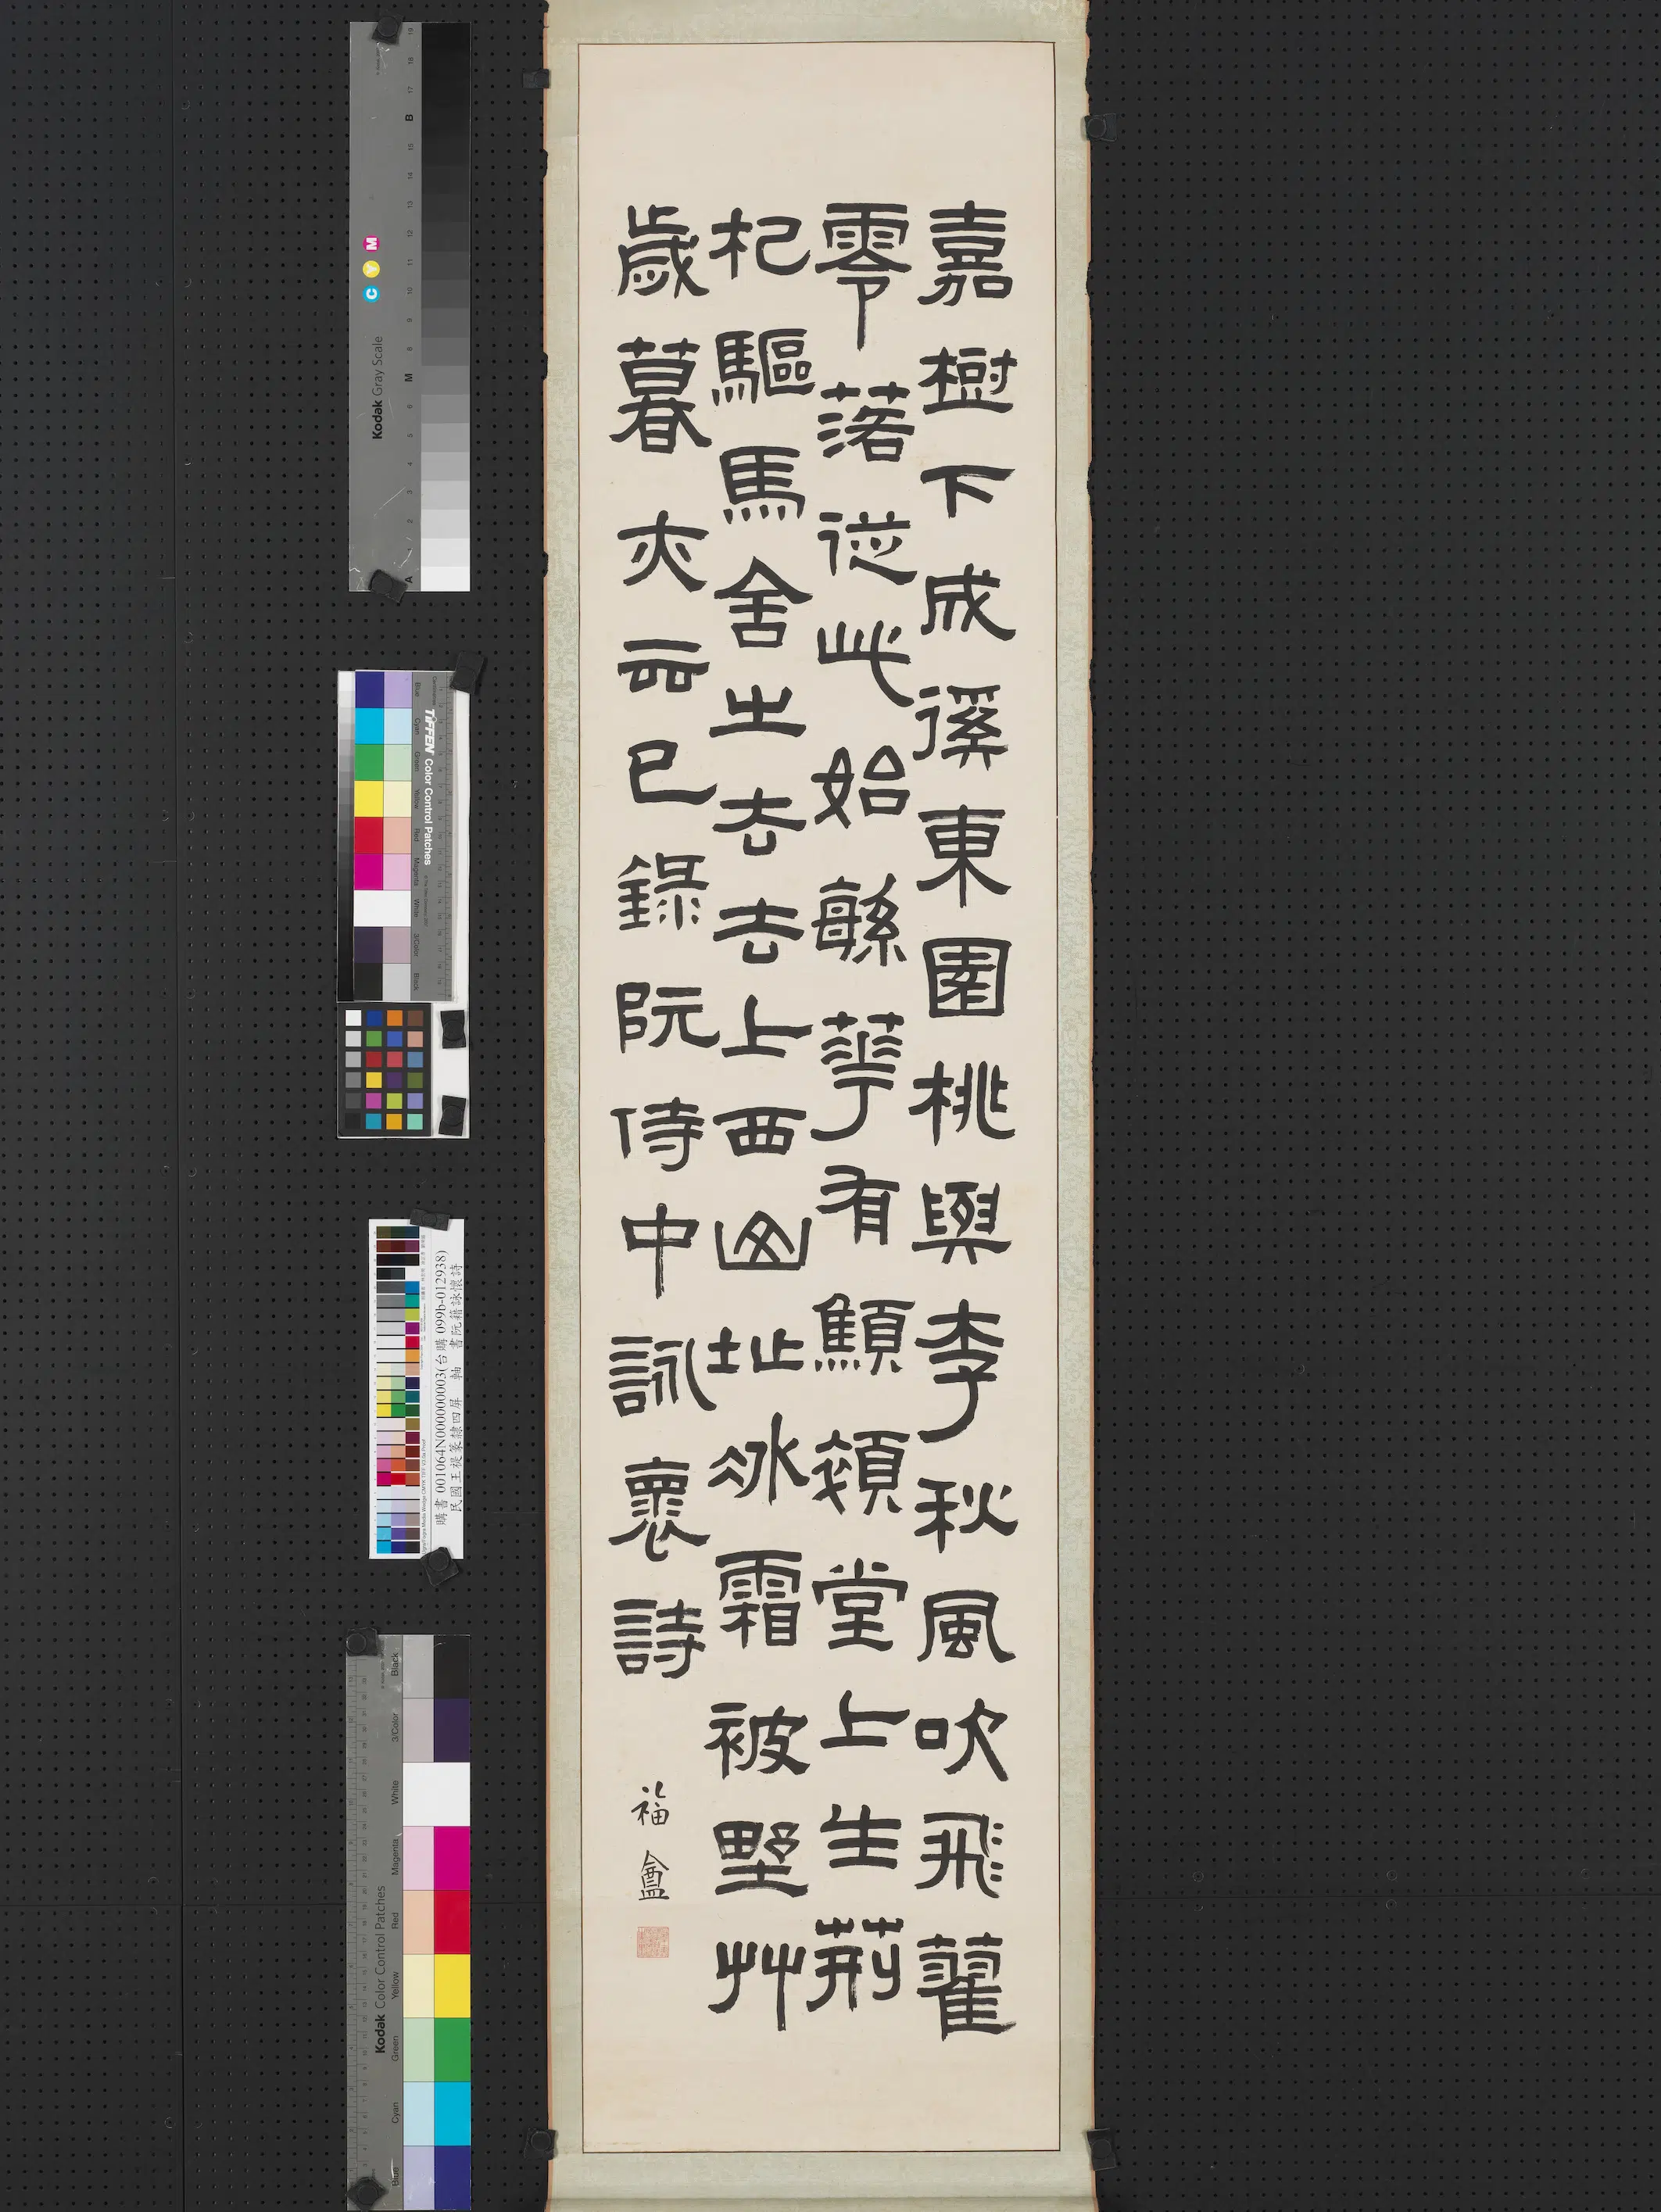 嘉樹下成徯東園桃與李秋風吹飛藿
零落從此始緐華有顦顇堂上生荊
杞驅馬舍之去去上西山址冰霜被墅艸
歲暮亦云已錄阮侍中詠褱詩
福盦
Kodak Gray Scale
C Y M
TIFFEN Color Control Patches
Blue Cyan Green Yellow Red Magenta White 3/Color Black
購書 001064N000000003(台購 099b-012938)
民國王禔篆隸四屏 軸 書阮籍詠懷詩
Kodak Color Control Patches
Blue Cyan Green Yellow Red Magenta White 3/Color Black